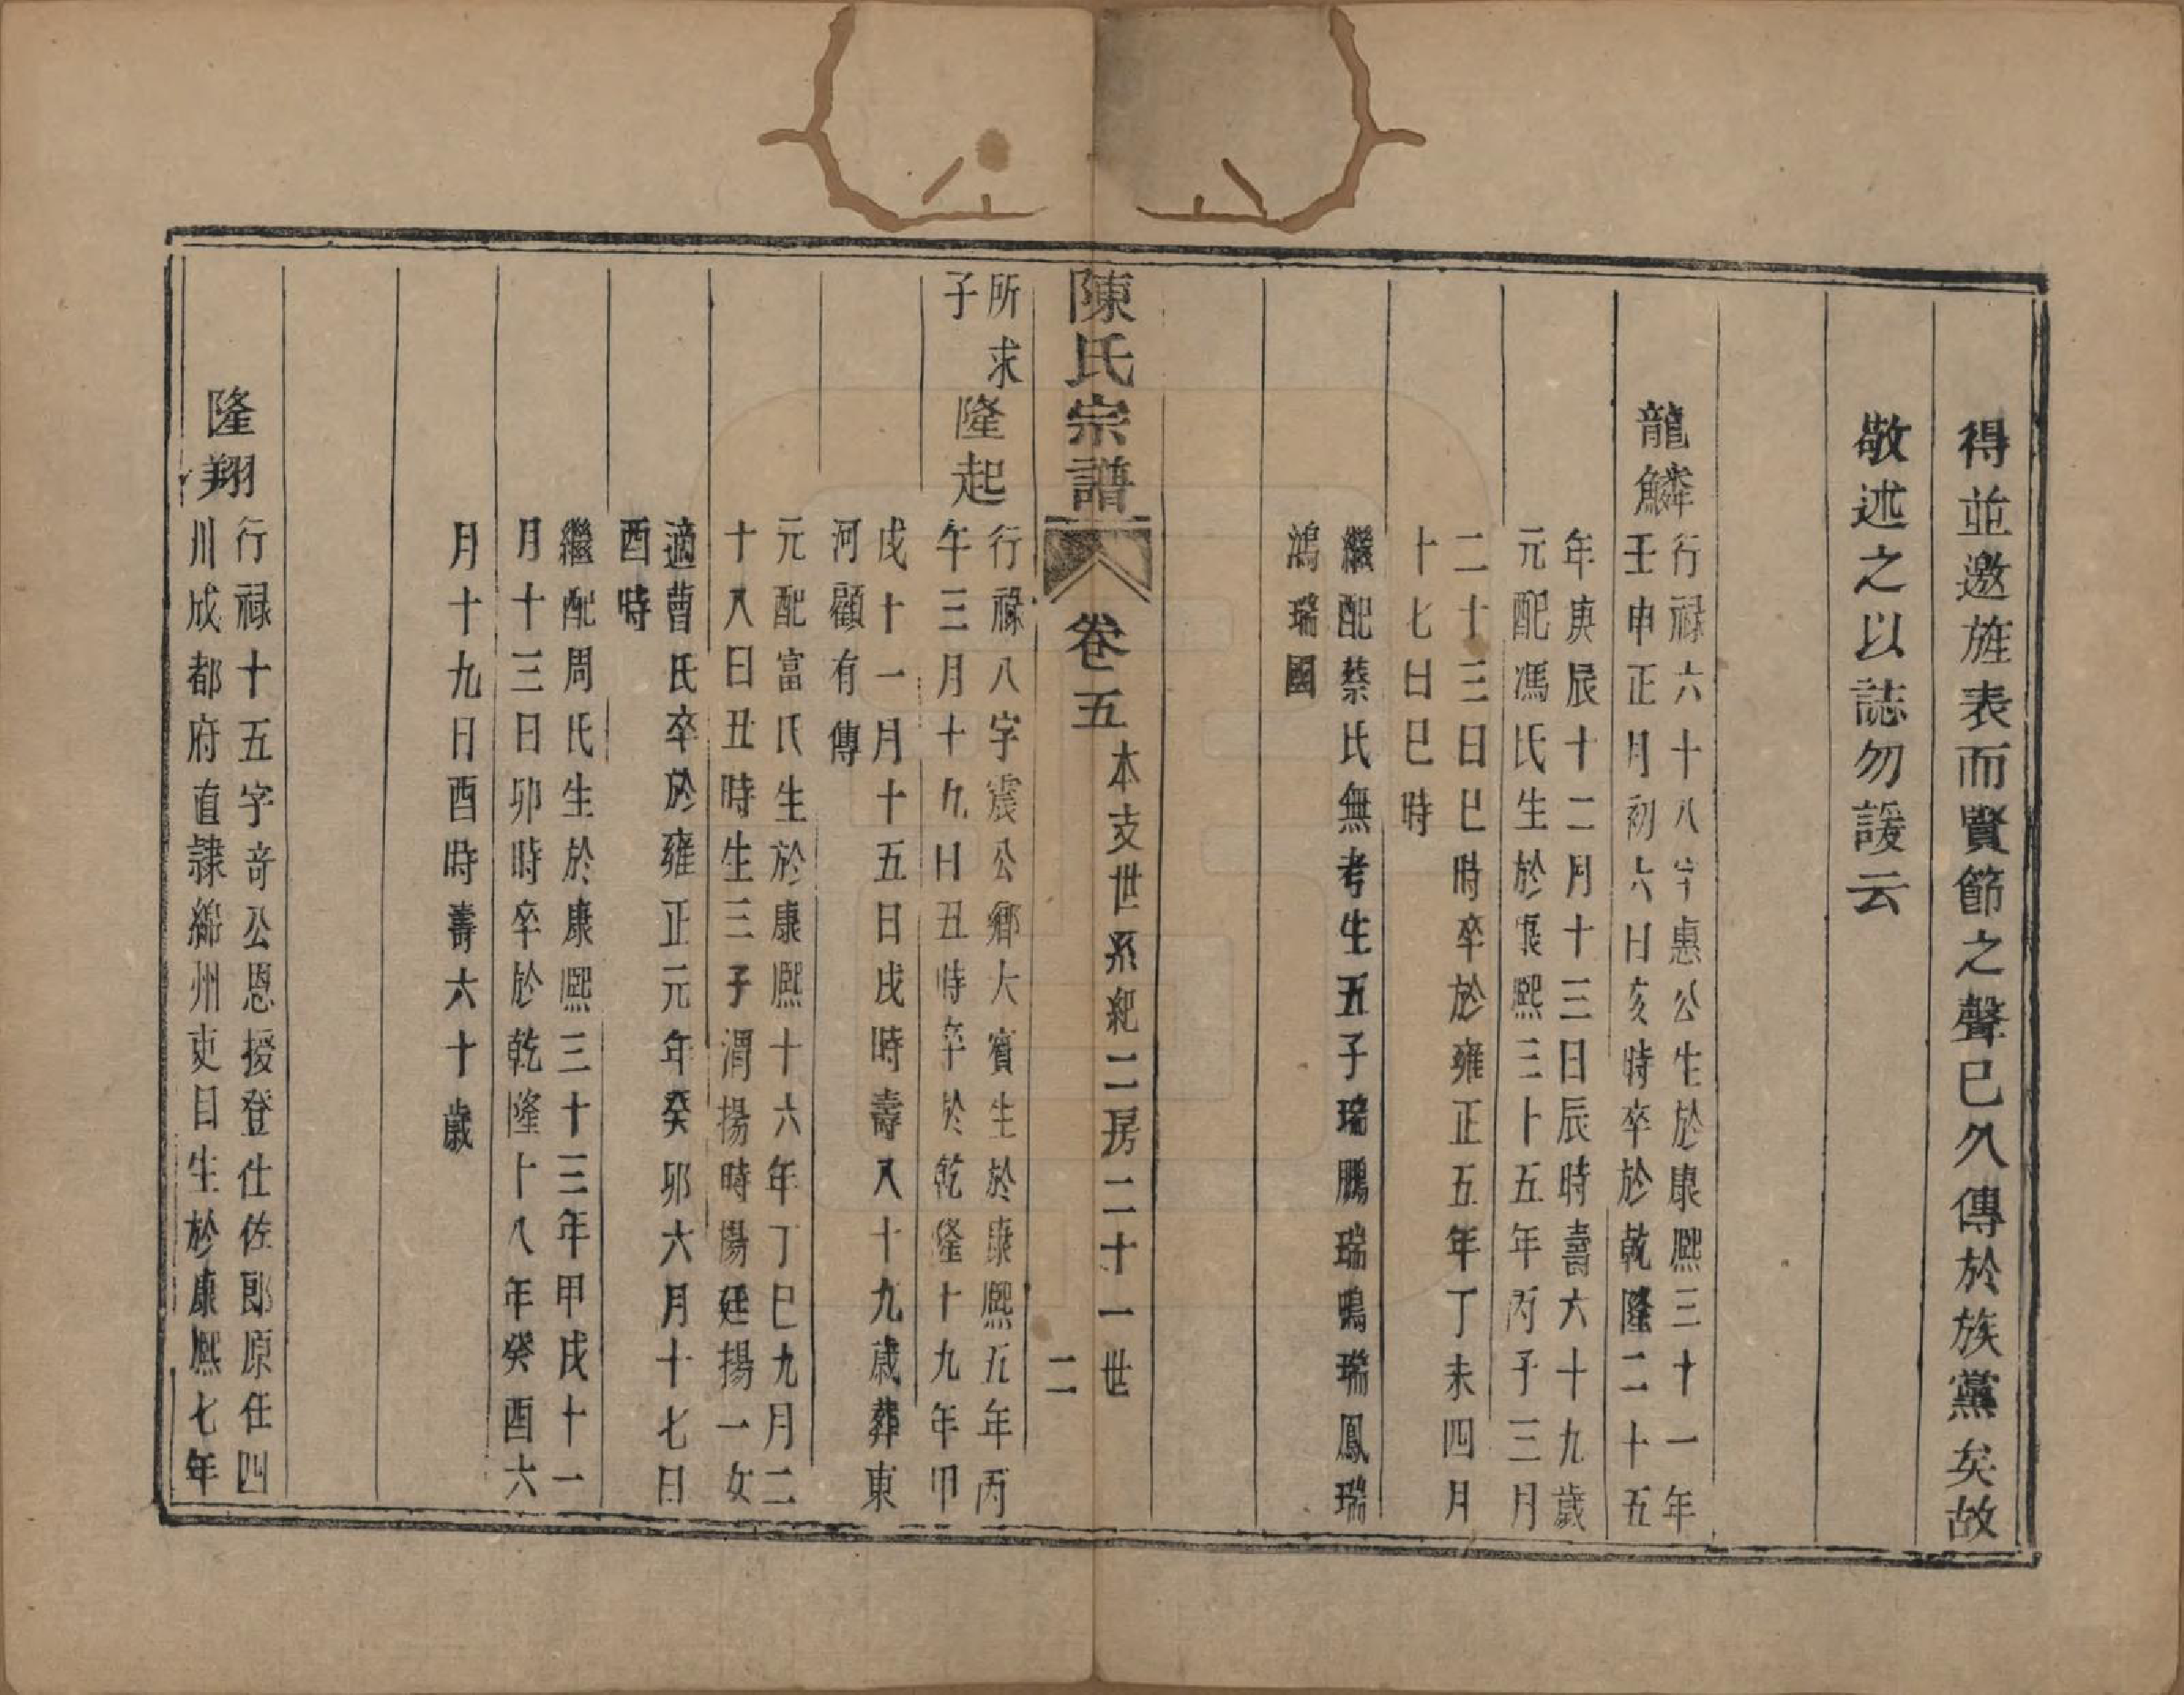 得並邀旌表而賢節之聲已久傳於族黨矣故
敬述之以誌勿諼云
龍鱗
行祿六十八字惠公生於康熙三十一年
壬申正月初六日亥時卒於乾隆二十五
年庚辰十二月十三日辰時壽六十九歲
元配馮氏生於康熙三十五年丙子三月
二十三日巳時卒於雍正五年丁未四月
十七日巳時
繼配蔡氏無考生五子瑞鵬瑞鳴瑞鳳瑞
鴻瑞國
陳氏宗譜
卷五
本支世系紀二房二十一世
二
所求
子
隆起
行祿八字震公鄉大賓生於康熙五年丙
午三月十九日丑時卒於乾隆十九年甲
戌十一月十五日戌時壽八十九歲葬東
河顧有傳
元配富氏生於康熙十六年丁巳九月二
十八日丑時生三子渭揚時揚廷揚一女
適曹氏卒於雍正元年癸卯六月十七日
酉時
繼配周氏生於康熙三十三年甲戌十一
月十三日卯時卒於乾隆十八年癸酉六
月十九日酉時壽六十歲
隆翔
行祿十五字奇公恩授登仕佐郎原任四
川成都府直隸綿州吏目生於康熙七年